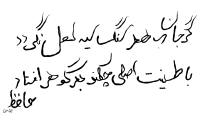 گر جان بدهد سنگ سیه لعل نگردد
با طینت اصلی چکند بد گوهر افتاد
حافظ